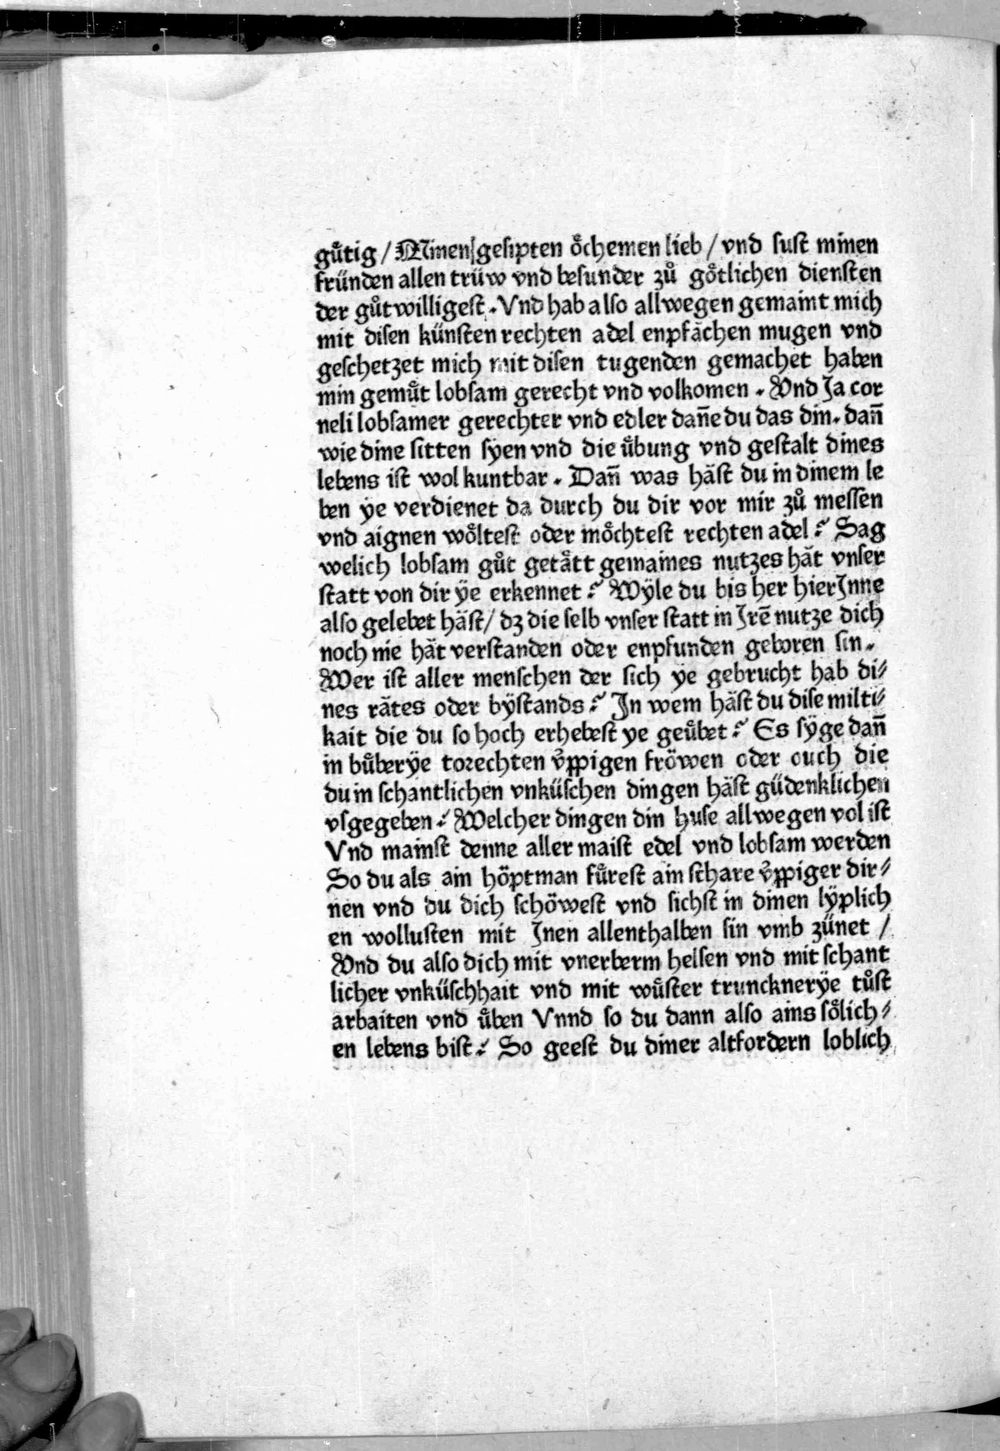 gütig / Minen gesipten öchemen lieb / vnd sust minen
fründen allen trüw vnd besunder zů götlichen diensten
der gůtwilligest. Vnd hab also allwegen gemaint mich
mit disen künsten rechten adel enpfächen mugen vnd
geschetzet mich mit disen tugenden gemachet haben
min gemüt lobsam gerecht vnd volkomen. Vnd Ja cor
neli lobsamer gerechter vnd edler dañe du das din. dañ
wie dine sitten syen vnd die übung vnd gestalt dines
lebens ist wol kuntbar. Dañ was häst du in dinem le
ben ye verdienet da durch du dir vor mir zů messen
vnd aignen wöltest oder möchtest rechten adel? Sag
welich lobsam gůt getätt gemaines nutzes hät vnser
statt von dir ÿe erkennet? Wÿle du bis her hierJnne
also gelebet häst / dz die selb vnser statt in Jrē nutze dich
noch nie hät verstanden oder enpfunden geboren sin.
Wer ist aller menschen der sich ye gebrucht hab di⸗
nes rätes oder bÿstands? Jn wem häst du dise milti⸗
kait die du so hoch erhebest ye geübet? Es sÿge dañ
in bůberÿe torechten v̈ppigen fröwen oder ouch die
du in schantlichen vnküschen dingen häst güdenklichen
vsgegeben? Welcher dingen din huse allwegen vol ist
Vnd mainst denne aller maist edel vnd lobsam werden
So du als ain höptman fürest ain schare v̈ppiger dir⸗
nen vnd du dich schöwest vnd sichst in dinen lÿplich
en wollusten mit Jnen allenthalben sin vmb zünet /
Vnd du also dich mit vnerberm helsen vnd mit schant
licher vnküschhait vnd mit wüster truncknerÿe tůst
arbaiten vnd üben Vnnd so du dann also ains sölich⸗
en lebens bist? So geest du diner altfordern loblich